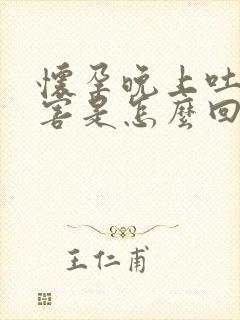 懷孕晚上吐
害是怎麼回
王仁甫